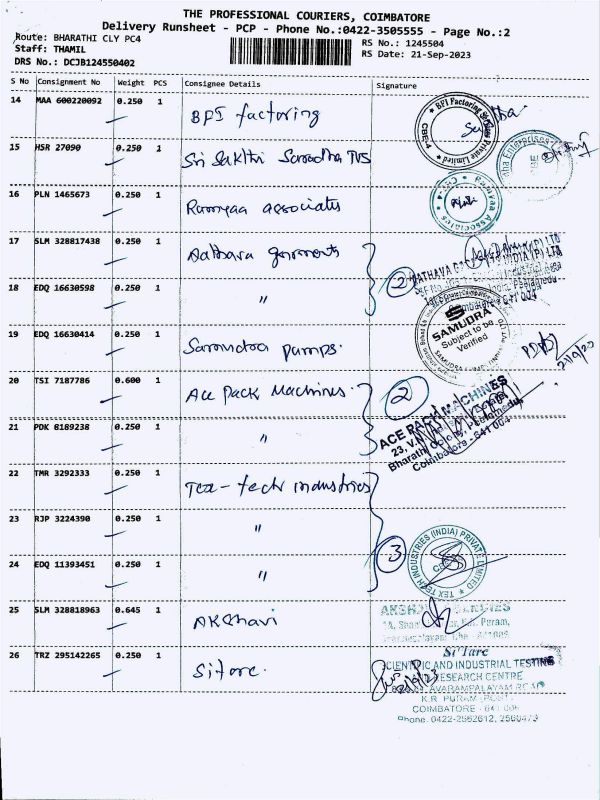 THE PROFESSIONAL COURIERS, COIMBATORE
Delivery Runsheet - PCP - Phone No.:0422-3505555 - Page No.:2
Route: BHARATHI CLY PC4
RS No.: 1245504
Staff: THAMIL
RS Date: 21-Sep-2023
DRS No.: DCJB124550402
S No Consignment No Weight PCS Consignee Details Signature
14 MAA 600220092 0.250 1 BPI factoring
BPI Factoring Services Private Limited
CBE-4
15 HSR 27090 0.250 1 Sri Sakthi Saradha TVS
Enterprises
16 PLN 1465673 0.250 1 Ramyaa associates
Ramyaa Associates
CBE-4
17 SLM 328817438 0.250 1 Aathava garments
2
18 EDQ 16630598 0.250 1 "
Coimbatore - 641 004
19 EDQ 16630414 0.250 1 Samudra pumps.
SAMUDRA
Subject to be
Verified
21/9/23
20 TSI 7187786 0.600 1 Ace Pack Machines.
2
ACE PACK MACHINES
21 PDK 8189238 0.250 1 "
Bharathi Colony, Peelamedu
Coimbatore - 641 004
22 TMR 3292333 0.250 1 Tex-tech industries
23 RJP 3224390 0.250 1 "
3
TEX TECH INDUSTRIES (INDIA) PRIVATE LIMITED
24 EDQ 11393451 0.250 1 "
25 SLM 328818963 0.645 1 Akshavi
26 TRZ 295142265 0.250 1 Sitare.
Si'Tare
SCIENTIFIC AND INDUSTRIAL TESTING
RESEARCH CENTRE
AVARAMPALAYAM ROAD
K.R. PURAM POST
COIMBATORE - 641 006
Phone: 0422-2562612, 2560473